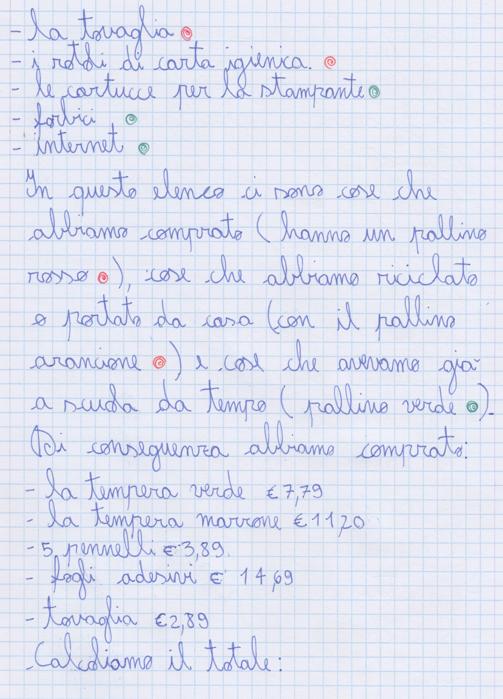 - la tovaglia
- i rotoli di carta igienica.
- le cartucce per la stampante
- forbici
- internet
In questo elenco ci sono cose che
abbiamo comprato (hanno un pallino
rosso), cose che abbiamo riciclato
o portato da casa (con il pallino
arancione) e cose che avevamo già
a scuola da tempo (pallino verde).
Di conseguenza abbiamo comprato:
- la tempera verde €7,79
- la tempera marrone €11,20
- 5 pennelli €3,89.
- fogli adesivi € 14,69
- tovaglia €2,89
Calcoliamo il totale: